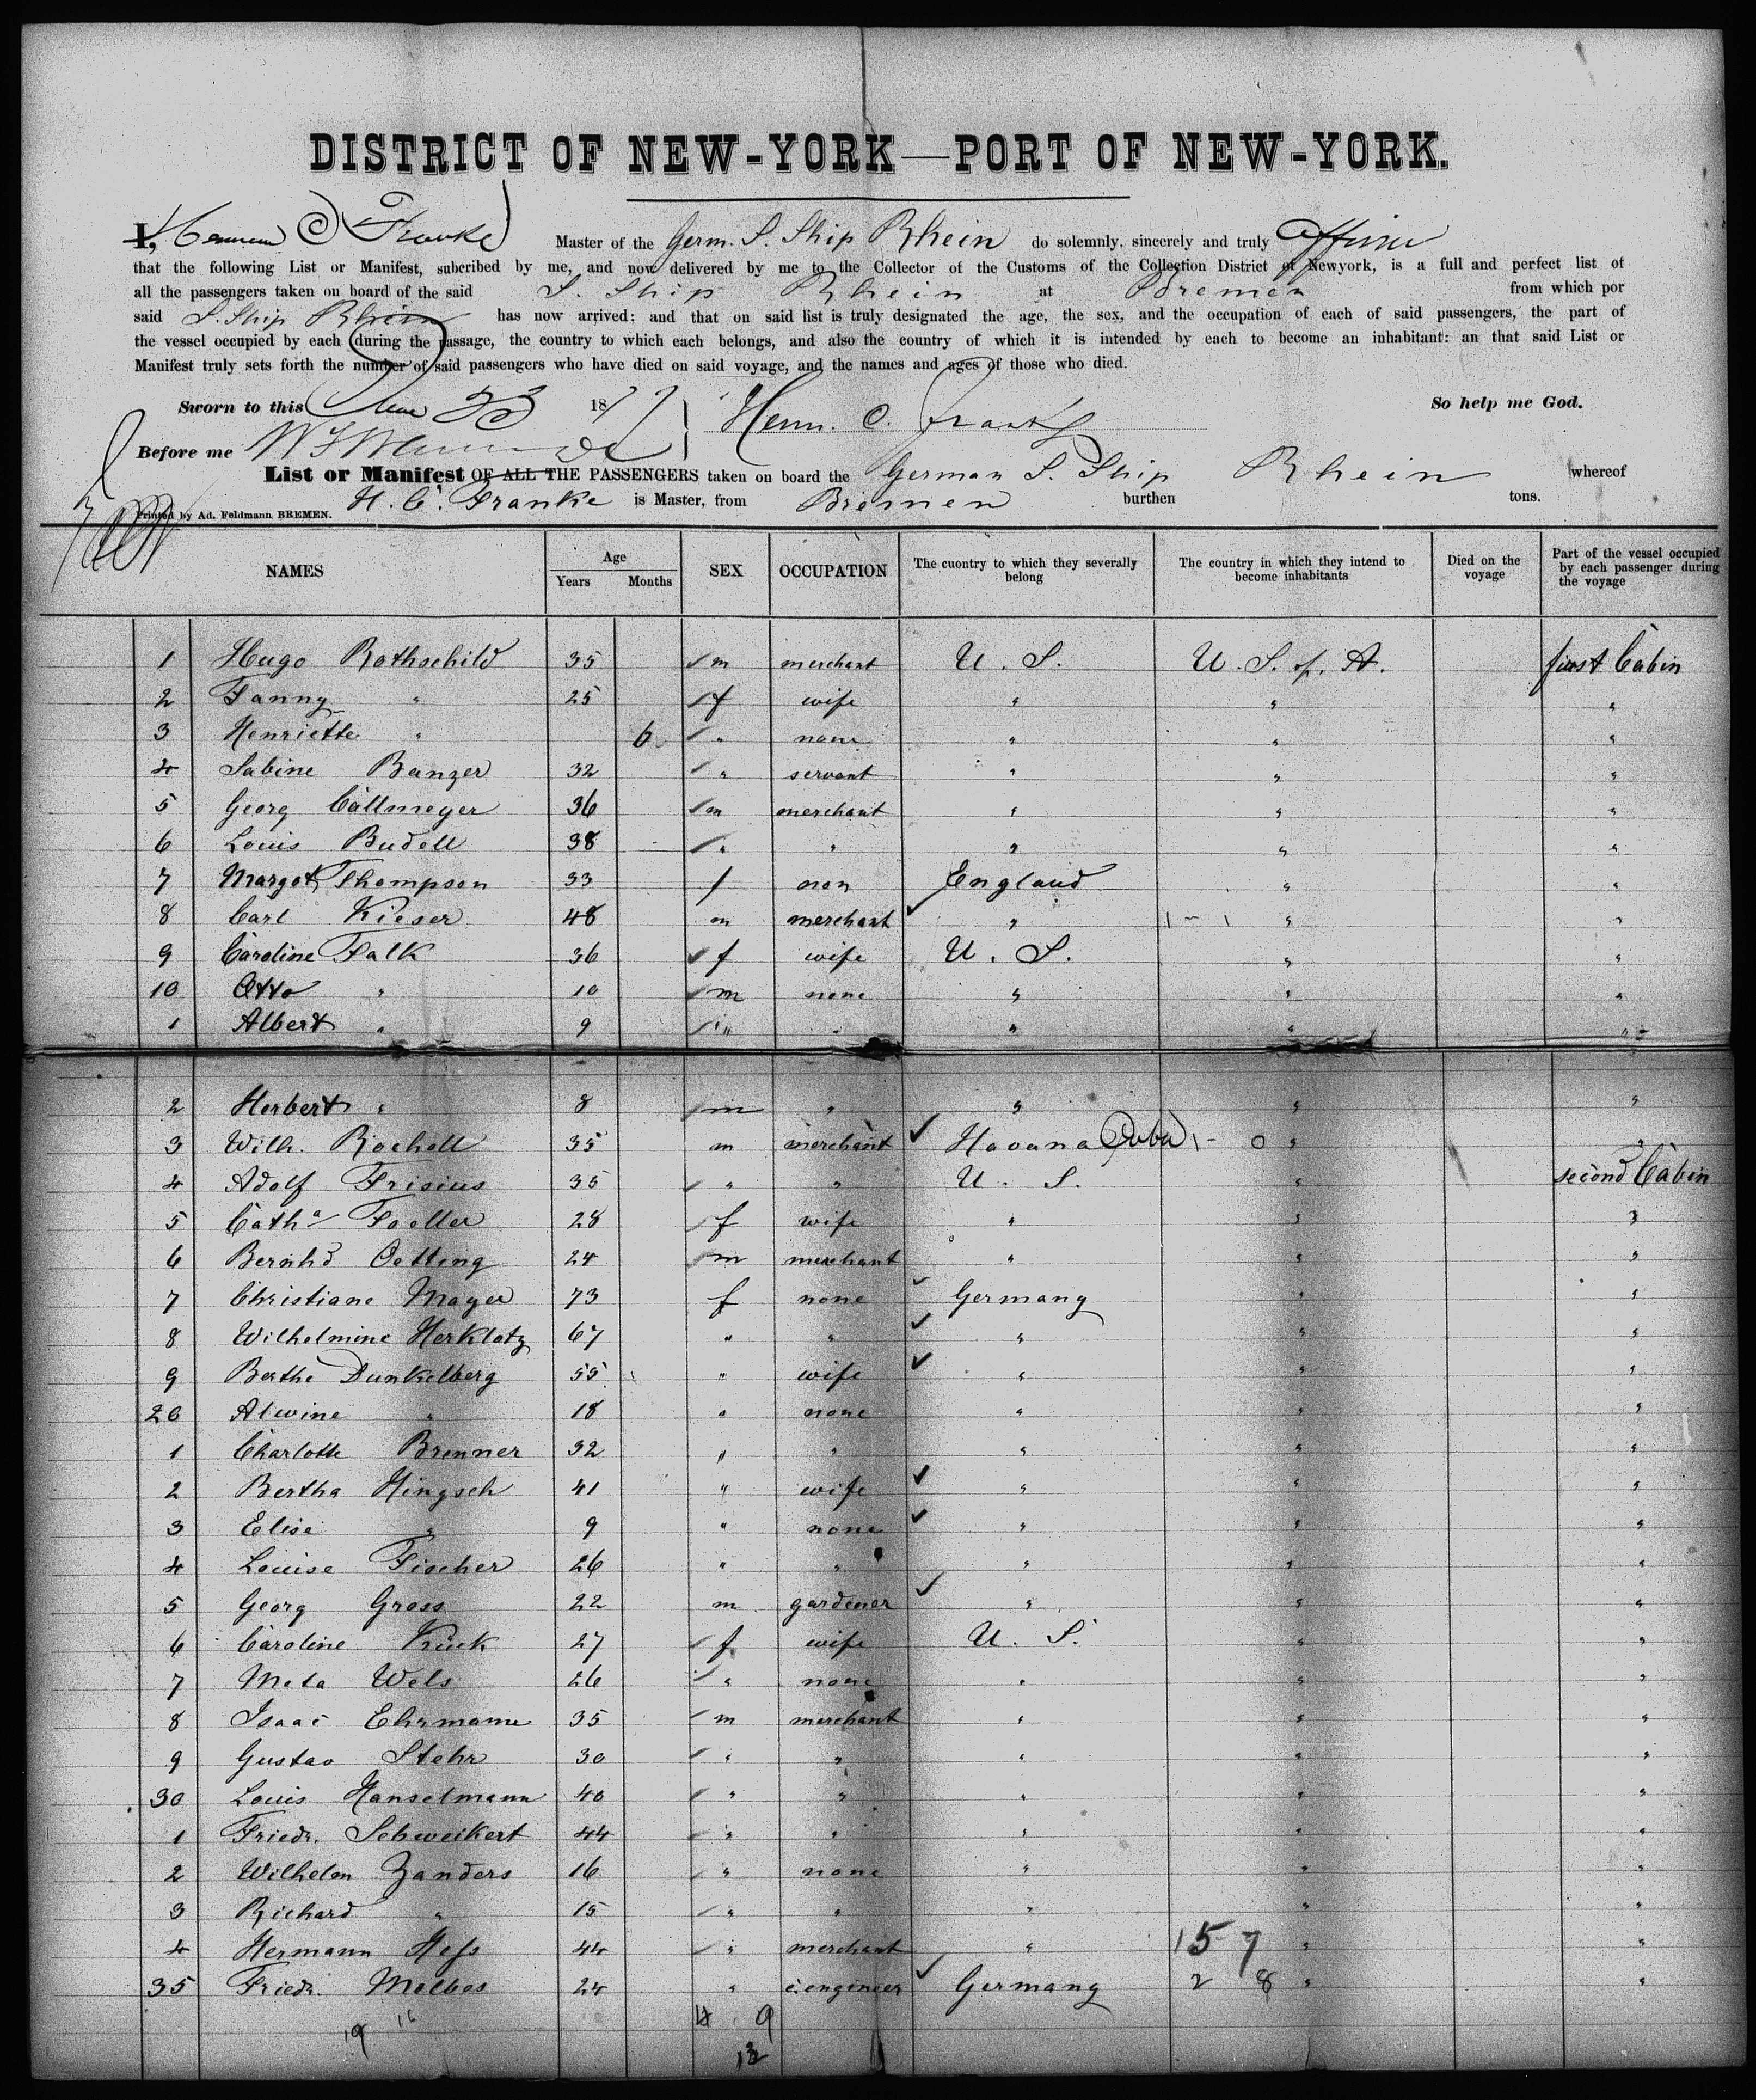 DISTRICT OF NEW-YORK—PORT OF NEW-YORK.
I, Hermann C Franke Master of the Germ. S. Ship Rhein do solemnly, sincerely and truly affirm
that the following List or Manifest, subcribed by me, and now delivered by me to the Collector of the Customs of the Collection District of Newyork, is a full and perfect list of
all the passengers taken on board of the said S. Ship Rhein at Bremen from which por
said S. Ship Rhein has now arrived; and that on said list is truly designated the age, the sex, and the occupation of each of said passengers, the part of
the vessel occupied by each during the passage, the country to which each belongs, and also the country of which it is intended by each to become an inhabitant: an that said List or
Manifest truly sets forth the number of said passengers who have died on said voyage, and the names and ages of those who died.
Sworn to this June 23 1877 Herm. C. Franke So help me God.
Before me
List or Manifest OF ALL THE PASSENGERS taken on board the German S. Ship Rhein whereof
H. C. Franke is Master, from Bremen burthen tons.
Printed by Ad. Feldmann BREMEN.
NAMES Age Years Months SEX OCCUPATION The cuontry to which they severally belong The country in which they intend to become inhabitants Died on the voyage Part of the vessel occupied by each passenger during the voyage
1 Hugo Rothschild 35 m merchant U. S. U. S. of. A. first Cabin
2 Fanny " 25 f wife " " "
3 Henriette " 6 " none " " "
4 Sabine Banzer 32 " servant " " "
5 Georg Callmeyer 36 m merchant " " "
6 Louis Budell 38 " " " " "
7 Margot Thompson 33 f non England " "
8 Carl Kieser 48 m merchant " " "
9 Caroline Falk 36 f wife U. S. " "
10 Otto " 10 m none " " "
1 Albert " 9 " " " " "
2 Herbert " 8 m " " " "
3 Wilh. Rocholl 35 m merchant Havana Cuba " "
4 Adolf Frisius 35 " " U. S. " second Cabin
5 Catha Foeller 28 f wife " " "
6 Bernhd Oetting 24 m merchant " " "
7 Christiane Mayer 73 f none Germany " "
8 Wilhelmine Herklotz 67 " " " " "
9 Berthe Dunkelberg 55 " wife " " "
20 Alwine " 18 " none " " "
1 Charlotte Brenner 32 " " " " "
2 Bertha Hingsch 41 " wife " " "
3 Elise " 9 " none " " "
4 Louise Fischer 26 " " " " "
5 Georg Gross 22 m gardener " " "
6 Caroline Krück 27 f wife U. S. " "
7 Meta Wels 26 " none " " "
8 Isaac Ehrmann 35 m merchant " " "
9 Gustav Stehr 30 " " " " "
30 Louis Hanselmann 40 " " " " "
1 Friedr. Schweikert 44 " " " " "
2 Wilhelm Zanders 16 " none " " "
3 Richard " 15 " " " " "
4 Hermann Hess 44 " merchant " 15 7 " "
35 Friedr. Molbes 24 " c. engineer Germany 2 8 " "
19 16 4 9
12